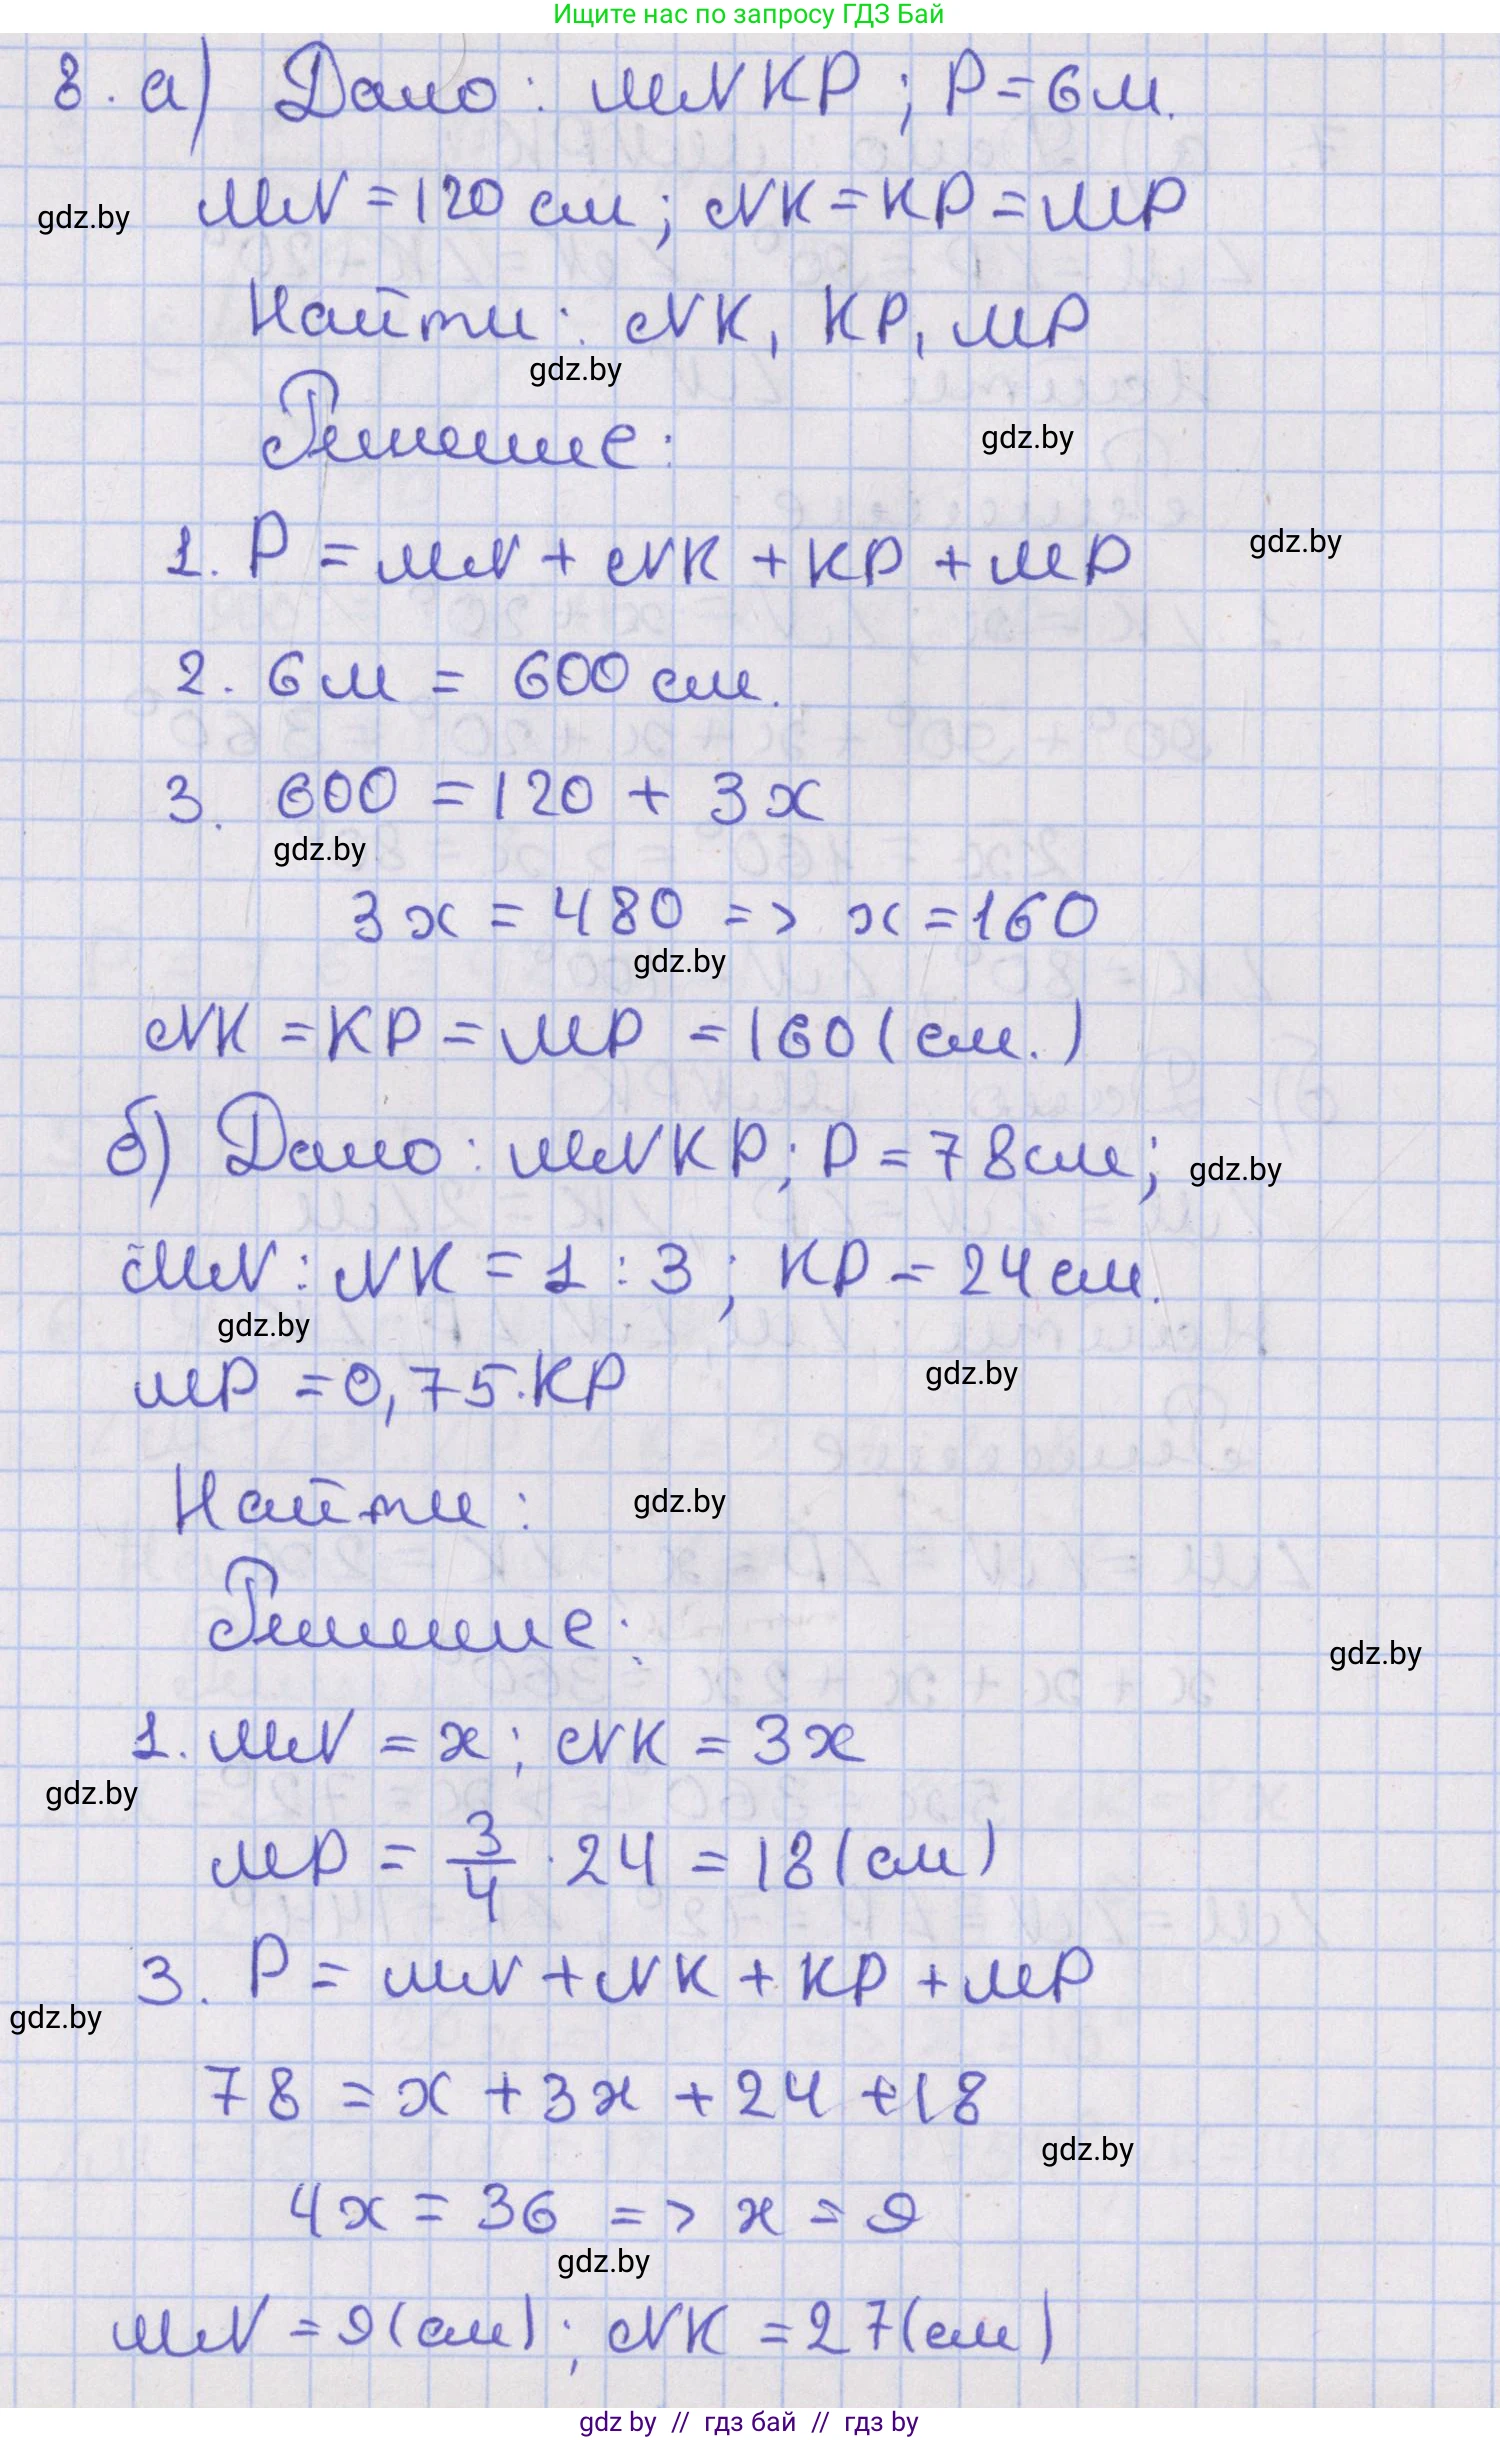 Ищите нас по запросу ГДЗ Бай
8. а) Дано: MNKP; P=6м.
gdz.by
MN=120 см; NK=KP=MP
Найти: NK, KP, MP
gdz.by
Решение:
gdz.by
1. P = MN + NK + KP + MP
gdz.by
2. 6 м = 600 см.
3. 600 = 120 + 3x
gdz.by
3x = 480 => x = 160
gdz.by
NK = KP = MP = 160 (см.)
б) Дано: MNKP; P = 78 см;
gdz.by
MN : NK = 1 : 3; KP = 24 см.
gdz.by
MP = 0,75·KP
gdz.by
Найти:
gdz.by
Решение:
gdz.by
1. MN = x; NK = 3x
gdz.by
MP = 3/4 · 24 = 18 (см)
3. P = MN + NK + KP + MP
gdz.by
78 = x + 3x + 24 + 18
gdz.by
4x = 36 => x = 9
gdz.by
MN = 9 (см); NK = 27 (см)
gdz by // гдз бай // гдз by